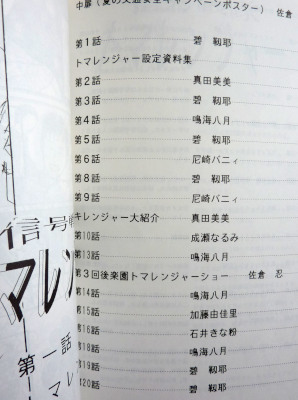 中扉(夏の交通安全キャンペーンポスター) 佐倉
第1話 碧 靱耶
トマレンジャー設定資料集
第2話 真田美美
第3話 碧 靱耶
第4話 鳴海八月
第5話 碧 靱耶
第6話 尼崎バニィ
第8話 碧 靱耶
第9話 尼崎バニィ
キレンジャー大紹介 真田美美
第10話 成瀬なるみ
第13話 鳴海八月
第3回後楽園トマレンジャーショー 佐倉 忍
第14話 鳴海八月
第15話 加藤由佳里
第16話 石井きな粉
第18話 鳴海八月
第19話 碧 靱耶
第20話 碧 靱耶
信号
マレン
第一話
マレ